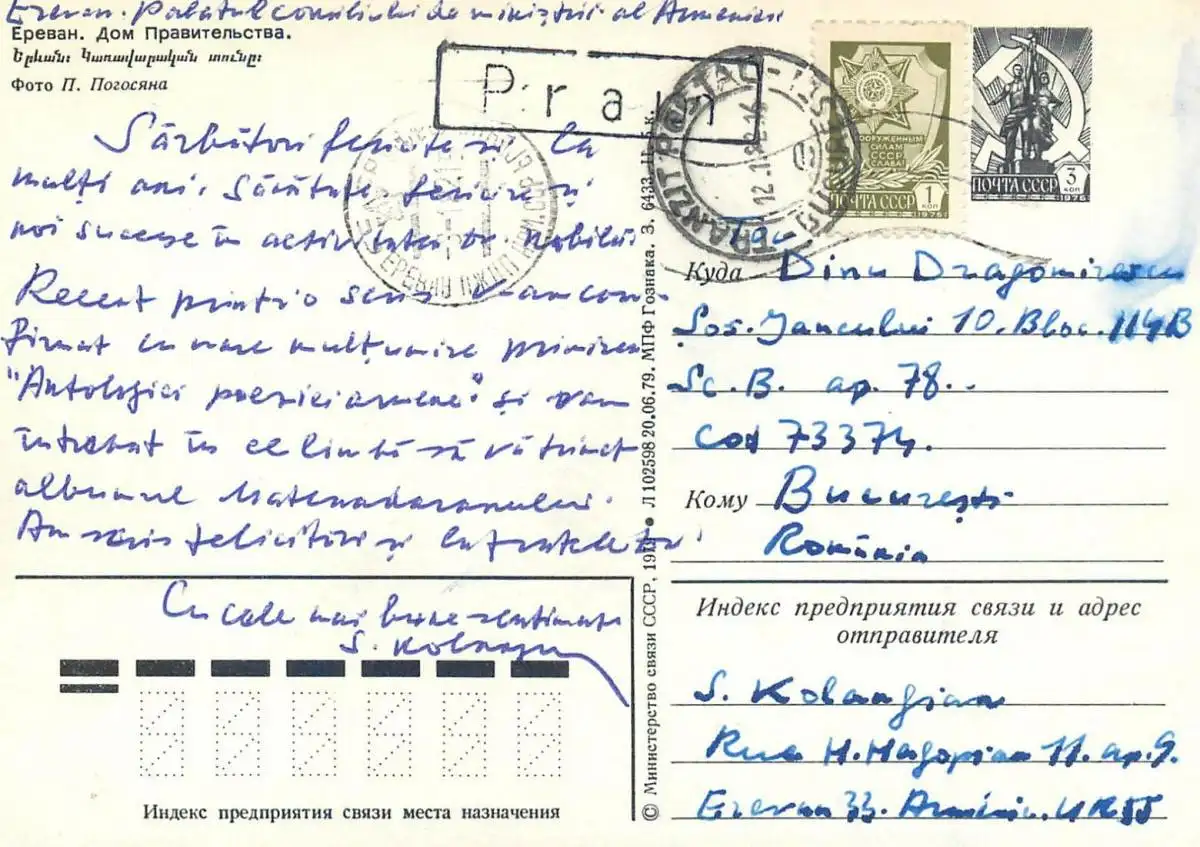 Erevan. Palatul consiliului de miniștrii al Armeniei
Ереван. Дом Правительства.
Երևան։ Կառավարական տունը։
Фото П. Погосяна
Sărbători fericite și La
mulți ani, sănătate fericire și
noi succese în activitatea Dv. nobilă.
Recent printr-o scris v-am con-
firmat cu mare mulțumire primirea
"Antologiei poeziei armene" și v-am
întrebat în ce limbă să vă trimit
albumul Matenadaranului.
Am scris felicitări și
Cu cele mai bune sentimente
S. Kolangian
Par
TRANZIT
ЕРЕВАН
ВООРУЖЕННЫМ
СИЛАМ
СССР
СЛАВА!
ПОЧТА СССР
1 коп
1976
ПОЧТА СССР
3 коп
1976
Куда
Dinu Dragomirescu
Șos. Iancului 10. Bloc. 114B
Sc. B. ap. 78.
Cod 73374.
Кому
București
România
Индекс предприятия связи и адрес
отправителя
S. Kolangian
Rua H. Hagopian 11. ap. 9.
Erevan 33. Armenia. URSS
Индекс предприятия связи места назначения
© Министерство связи СССР, 1979 • Л 102598 20.06.79. МПФ Гознака. З. 6433. Ц. 4 к.